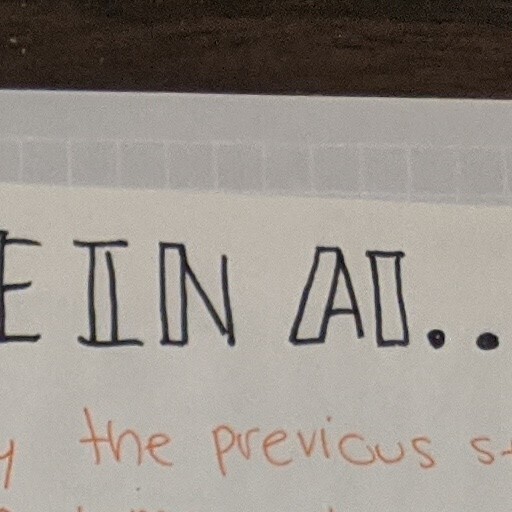 E IN AI..
y the previous s